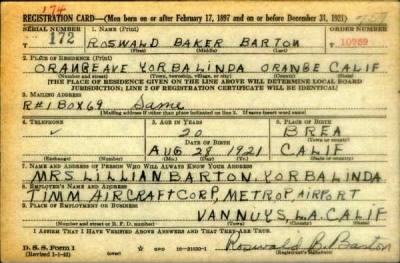 174
REGISTRATION CARD—(Men born on or after February 17, 1897 and on or before December 31, 1921)
SERIAL NUMBER 1. NAME (Print) ORDER NUMBER
T 172 ROSWALD BAKER BARTON 10789
(First) (Middle) (Last)
2. PLACE OF RESIDENCE (Print)
ORANGE AVE YORBA LINDA ORANGE CALIF
(Number and street) (Town, township, village, or city) (County) (State)
[THE PLACE OF RESIDENCE GIVEN ON THE LINE ABOVE WILL DETERMINE LOCAL BOARD
JURISDICTION; LINE 2 OF REGISTRATION CERTIFICATE WILL BE IDENTICAL]
3. MAILING ADDRESS
R#1 BOX 69 Same
[Mailing address if other than place indicated on line 2. If same insert word same]
4. TELEPHONE 5. AGE IN YEARS 6. PLACE OF BIRTH
20 BREA
DATE OF BIRTH (Town or county)
AUG 28 1921 CALIF
(Exchange) (Number) (Mo.) (Day) (Yr.) (State or country)
7. NAME AND ADDRESS OF PERSON WHO WILL ALWAYS KNOW YOUR ADDRESS
MRS LILLIAN BARTON, YORBA LINDA
8. EMPLOYER'S NAME AND ADDRESS
TIMM AIRCRAFT CORP, METROP, AIRPORT
9. PLACE OF EMPLOYMENT OR BUSINESS
VAN NUYS, L.A. CALIF
(Number and street or R. F. D. number) (Town) (County) (State)
I AFFIRM THAT I HAVE VERIFIED ABOVE ANSWERS AND THAT THEY ARE TRUE.
D. S. S. Form 1 GPO 16—21630-1 Roswald B. Barton
(Revised 1-1-42) (Registrant's signature)